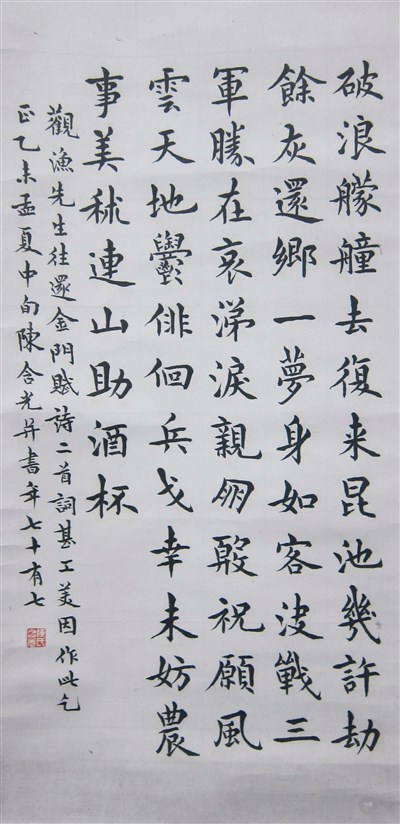 破浪艨艟去復来昆池幾許劫
餘灰還鄉一夢身如客決戰三
軍勝在哀涕淚親朋殷祝願風
雲天地鬱徘徊兵戈幸未妨農
事美秫連山助酒杯
觀漁先生往還金門賦詩二首詞甚工美因作此乞
正乙未孟夏中旬陳含光并書年七十有七